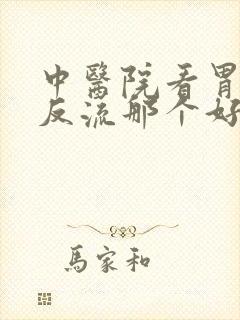 中醫院看胃
反流那个好
馬家和